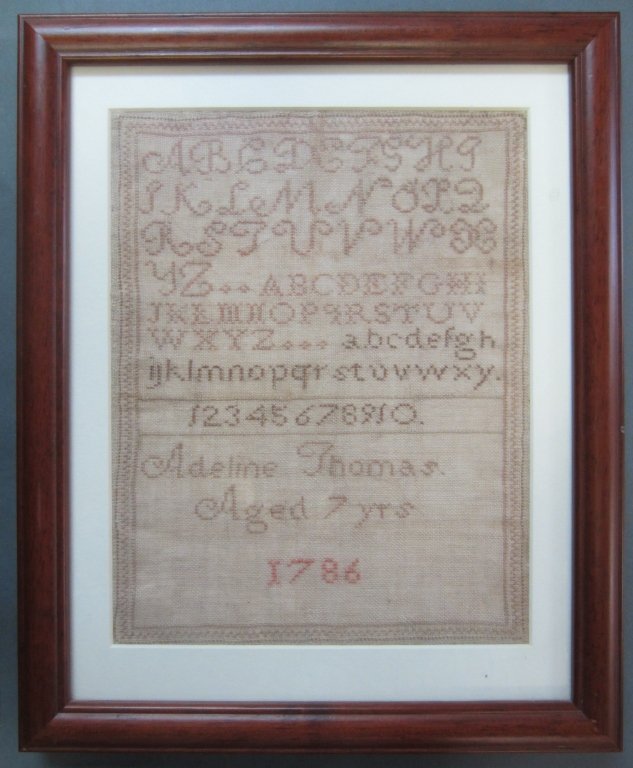 A B C D E F G H I
J K L M N O P Q
R S T U V W X
Y Z . . A B C D E F G H I
J K L M N O P Q R S T U V
W X Y Z . . . a b c d e f g h
i j k l m n o p q r s t u v w x y .
1 2 3 4 5 6 7 8 9 1 0 .
Adeline Thomas.
Aged 7 yrs
1786